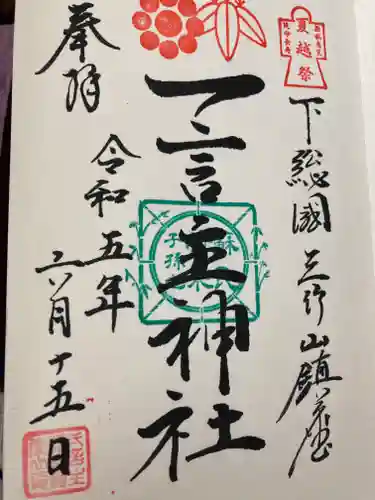 夏越祭
下総國三竹山鎮座
一言主神社
奉拝
令和五年
六月十五日
子孫